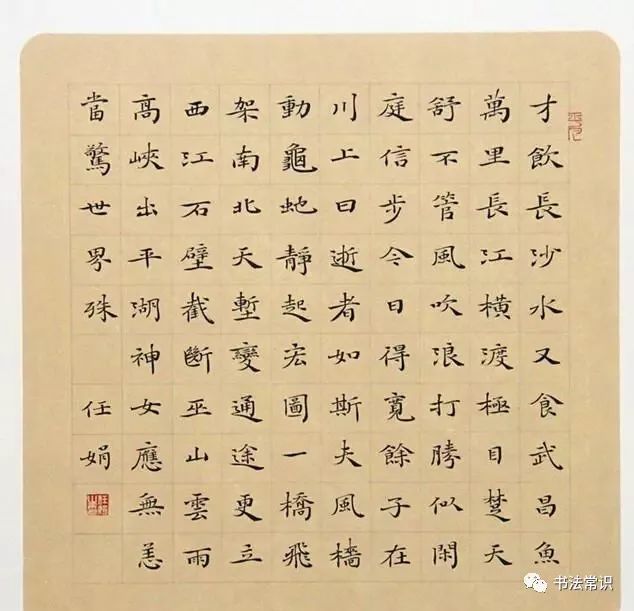 才飲長沙水又食武昌魚
萬里長江橫渡極目楚天
舒不管風吹浪打勝似閑
庭信步今日得寬餘子在
川上曰逝者如斯夫風檣
動龜蛇靜起宏圖一橋飛
架南北天塹變通途更立
西江石壁截斷巫山雲雨
高峽出平湖神女應無恙
當驚世界殊 任娟
书法常识